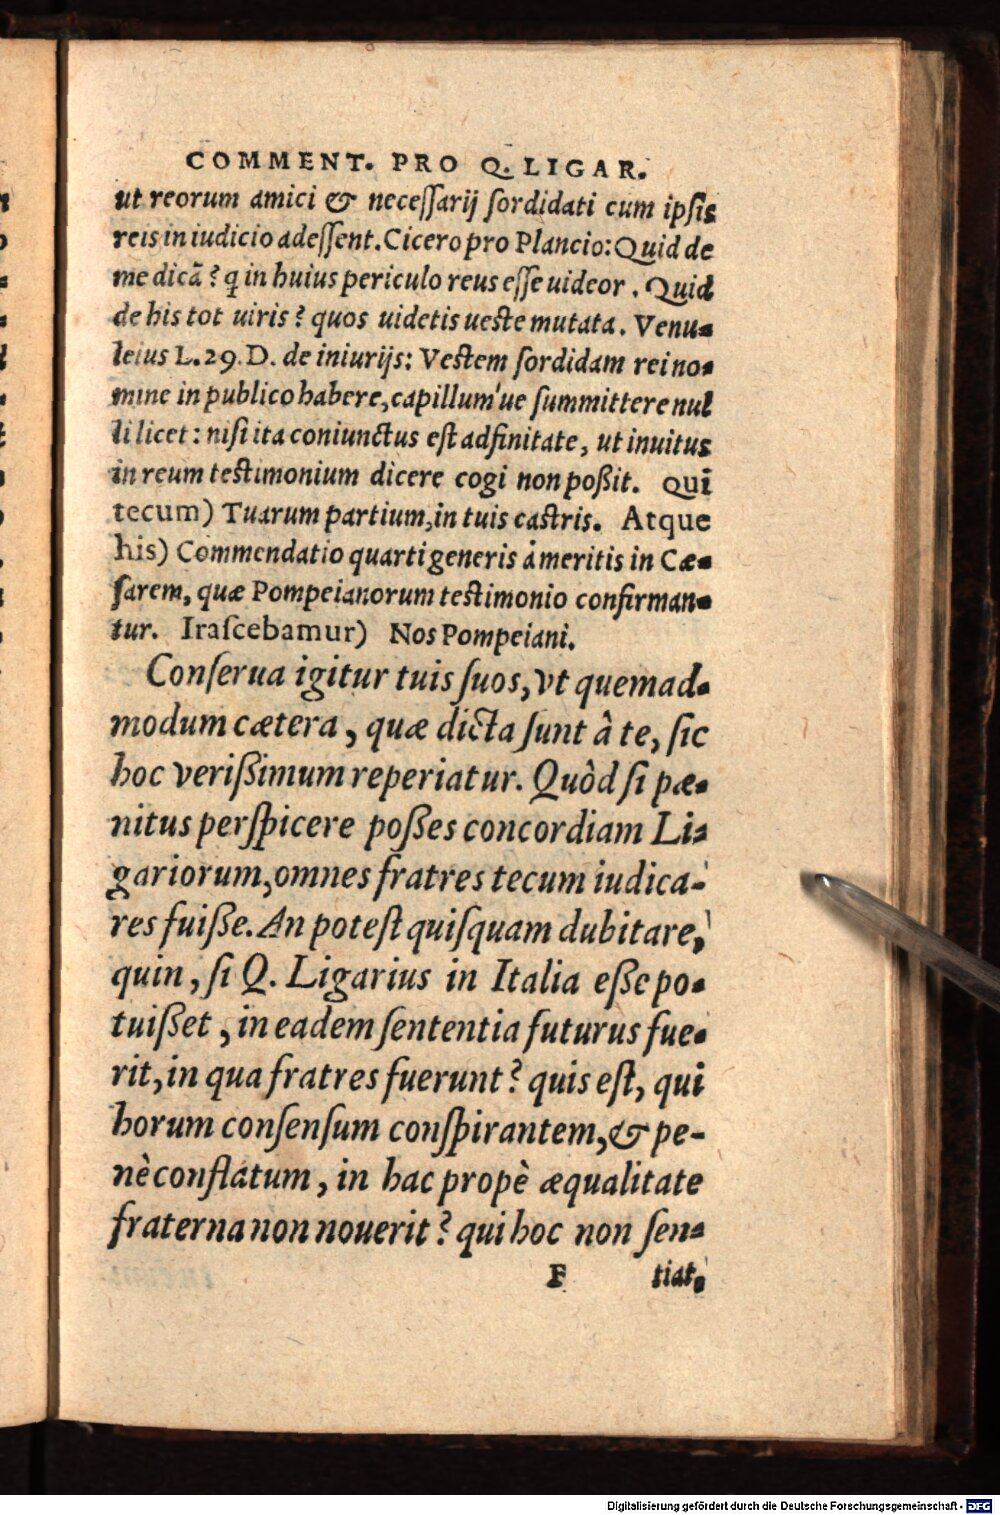 COMMENT. PRO Q. LIGAR.
ut reorum amici & necessarij sordidati cum ipsis
reis in iudicio adessent. Cicero pro Plancio: Quid de
me dicā? q̨ in huius periculo reus esse uideor. Quid
de his tot uiris? quos uidetis ueste mutata. Venu-
leius L. 29. D. de iniurijs: Vestem sordidam rei no-
mine in publico habere, capillum'ue summittere nul
li licet: nisi ita coniunctus est adfinitate, ut inuitus
in reum testimonium dicere cogi non poßit. Qui
tecum) Tuarum partium, in tuis castris. Atque
his) Commendatio quarti generis à meritis in Cæ-
sarem, quæ Pompeianorum testimonio confirman-
tur. Irascebamur) Nos Pompeiani.
Conserua igitur tuis suos, vt quemad-
modum cætera, quæ dicta sunt â te, sic
hoc verißimum reperiatur. Quòd si pæ-
nitus perspicere poßes concordiam Li-
gariorum, omnes fratres tecum iudica-
res fuiße. An potest quisquam dubitare,
quin, si Q. Ligarius in Italia eße po-
tuißet, in eadem sententia futurus fue-
rit, in qua fratres fuerunt? quis est, qui
horum consensum conspirantem, & pe-
nè conflatum, in hac propè æqualitate
fraterna non nouerit? qui hoc non sen-
F tiat,
Digitalisierung gefördert durch die Deutsche Forschungsgemeinschaft - DFG